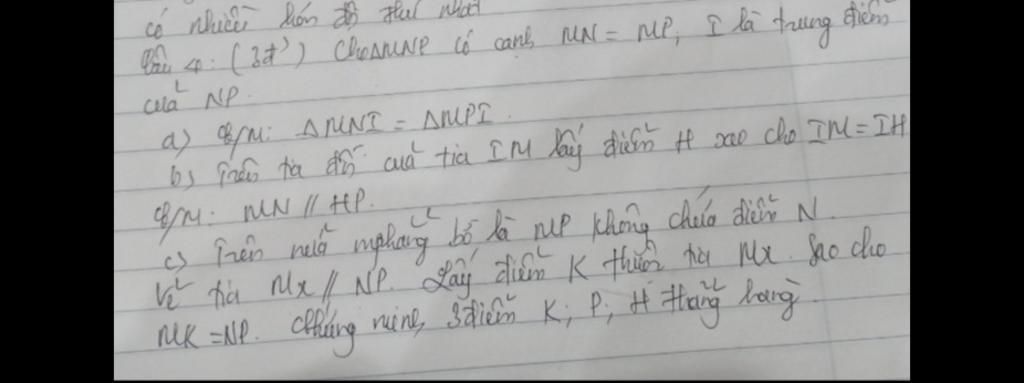 có nhiều hơn độ thứ nhất
Câu 4: (3đ) Cho ΔMNP có cạnh MN = MP, I là trung điểm
của NP.
a) C/M: ΔMNI = ΔMPI.
b) Trên tia đối của tia IM lấy điểm H sao cho IM = IH
C/M: MN // HP.
c) Trên nửa mphẳng bờ là MP không chứa điểm N.
Vẽ tia Mx // NP. Lấy điểm K thuộc tia Mx sao cho
MK = NP. Chứng minh 3 điểm K; P; H thẳng hàng.